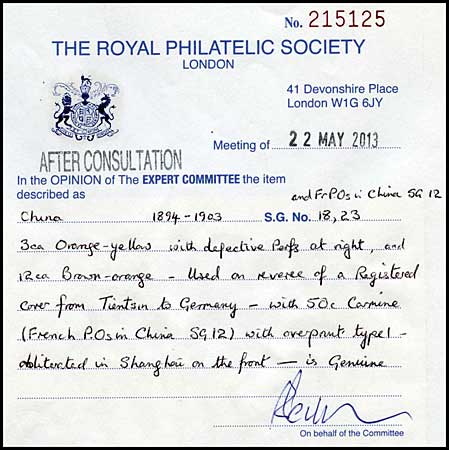 No. 215125
THE ROYAL PHILATELIC SOCIETY
LONDON
41 Devonshire Place
London W1G 6JY
Meeting of 22 MAY 2013
AFTER CONSULTATION
In the OPINION of The EXPERT COMMITTEE the item
described as
and Fr P.Os in China SG 12
China 1894-1903 S.G. No. 18, 23
3ca Orange-yellow with defective Perfs at right, and
12ca Brown-orange - Used on reverse of a Registered
cover from Tientsin to Germany - with 50c Carmine
(French P.Os in China SG 12) with overprint type 1 -
obliterated in Shanghai on the front — is Genuine
On behalf of the Committee